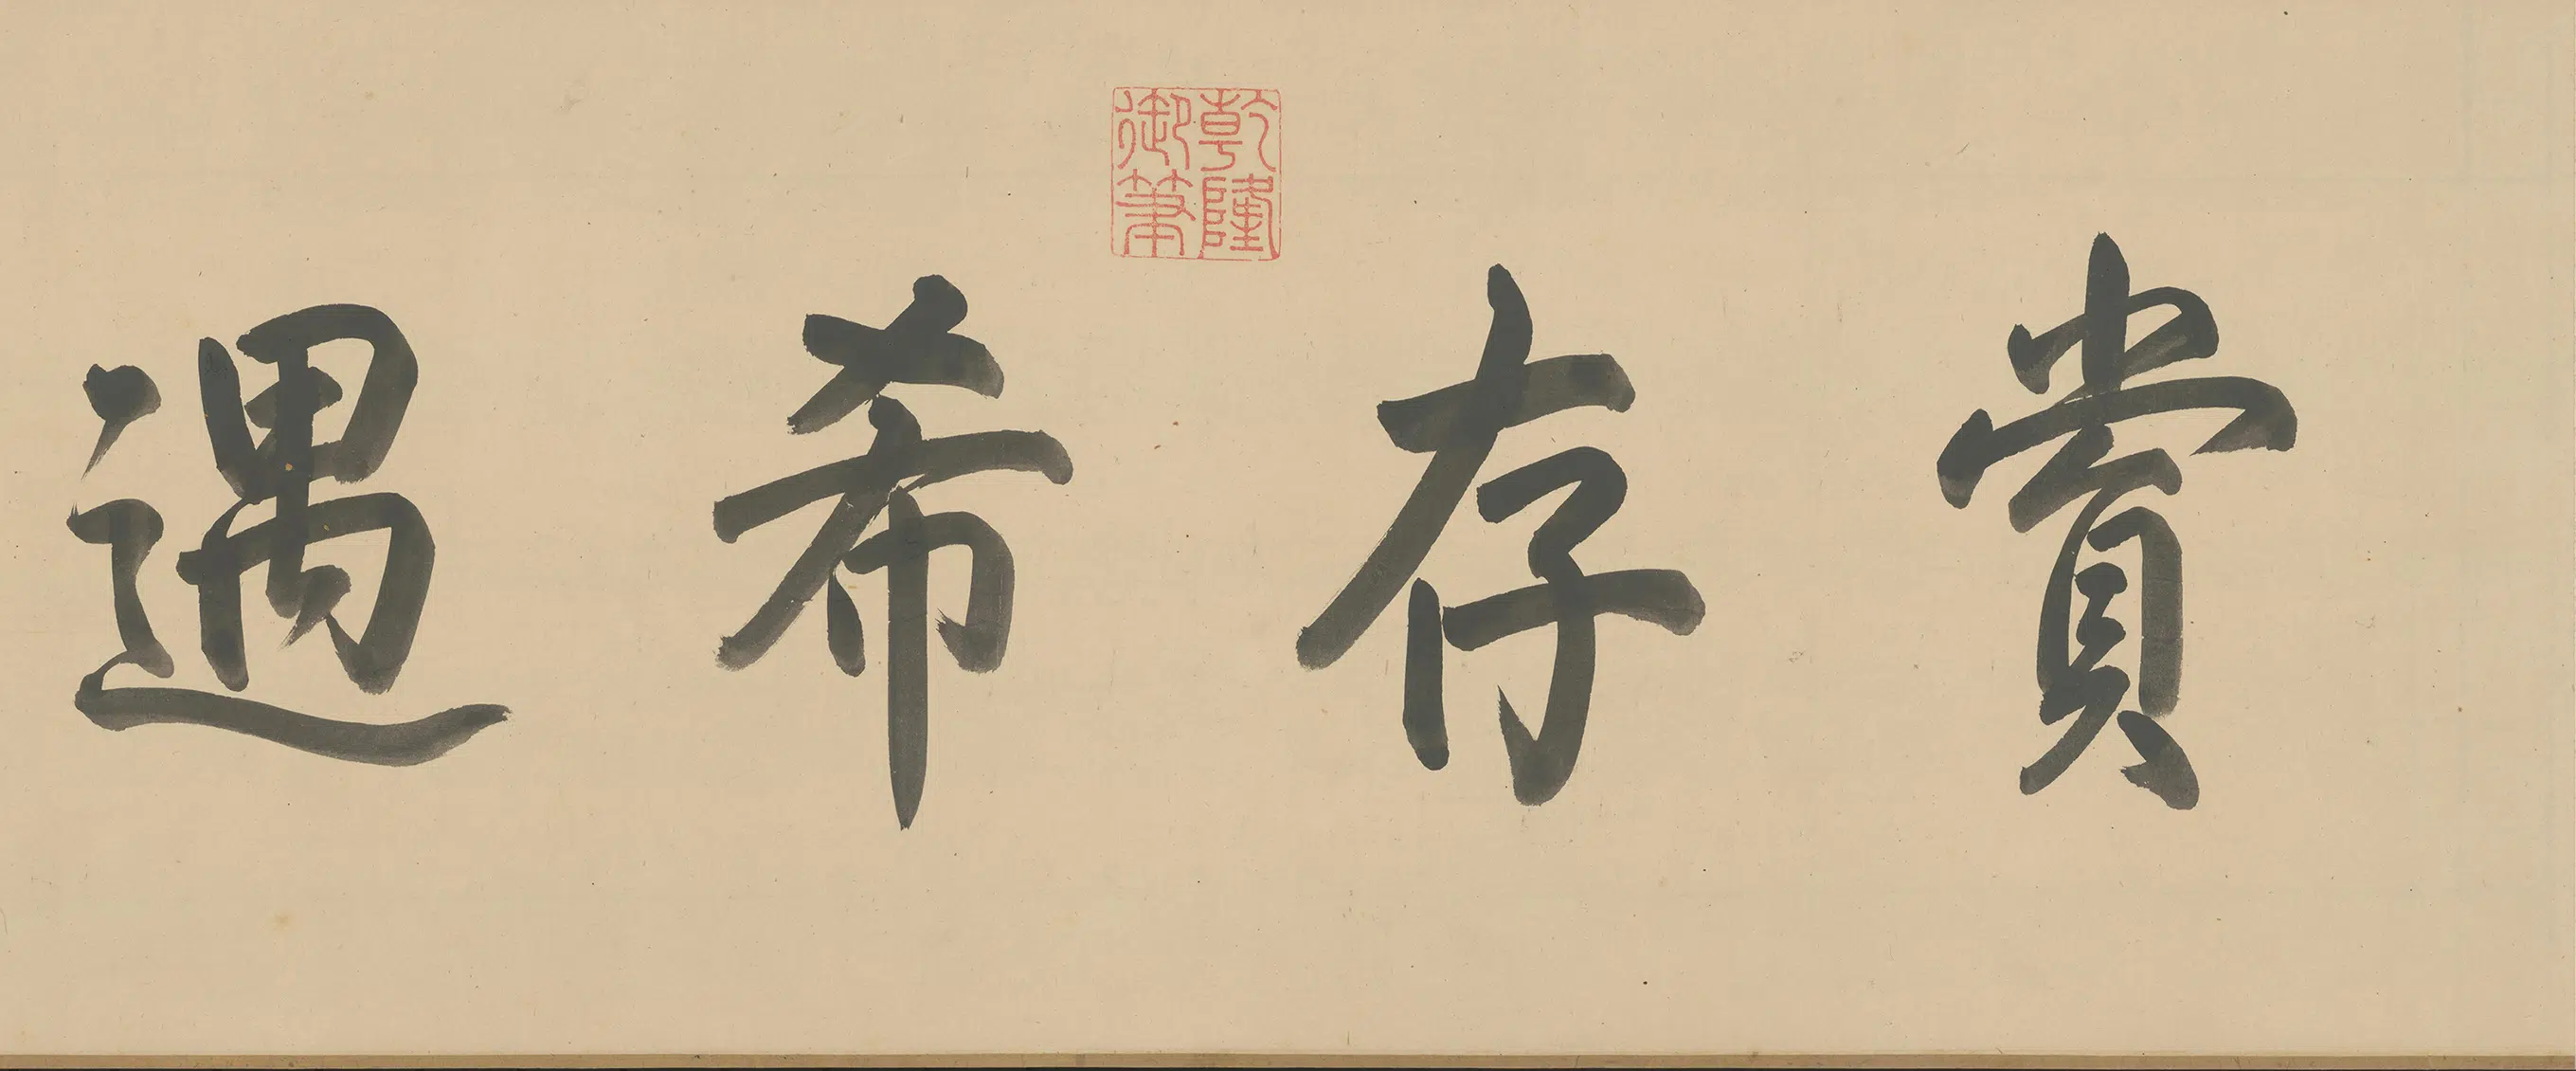 賞存希遇
乾隆
御筆